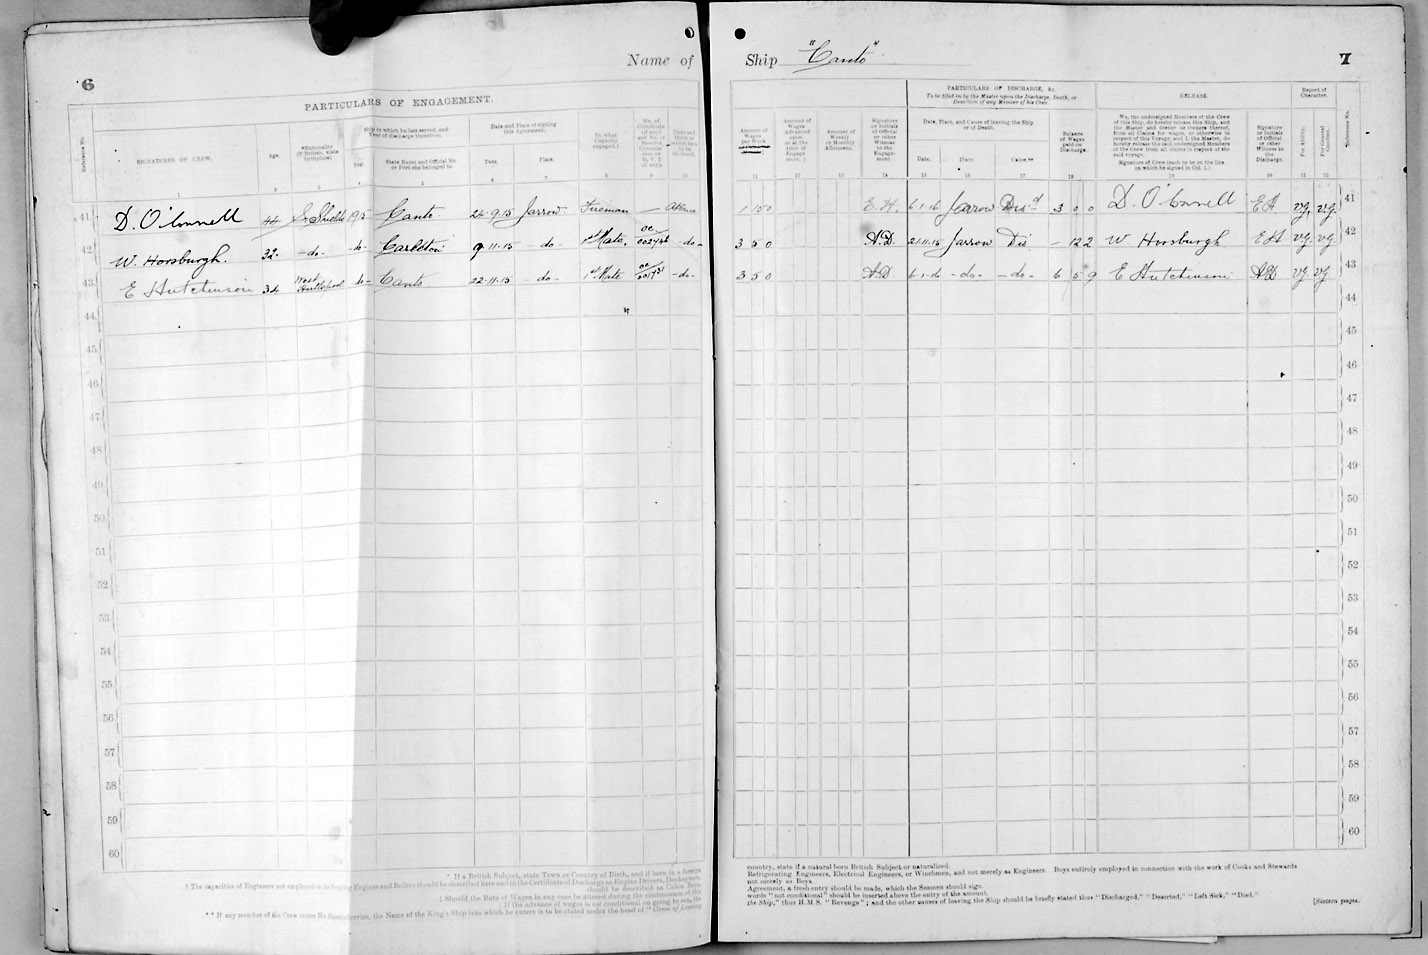 6
Name of
PARTICULARS OF ENGAGEMENT.
Reference No.
SIGNATURES OF CREW.
Age.
*Nationality
(If British, state
birthplace).
Ship in which he last served, and
Year of discharge therefrom.
Year
State Name and Official No.
or Port she belonged to.
Date and Place of signing
this Agreement.
Date.
Place.
In what
Capacity
engaged.†
No. of
Certificate
(if any)
1 2 3 4 5 6 7 8 9 10
41 D. O'Connell 44 S. Shields 1915 Canto 24.9.15 Jarrow Fireman —
42 W. Horsburgh. 32 -do- -do- Carleton 9.11.15 -do- 1st Mate. -do-
43 E Hutchinson 34 West Hartlepool -do- Canto 22.11.15 -do- 1st Mate -do-
44
45
46
47
48
49
50
51
52
53
54
55
56
57
58
59
60
* If a British Subject, state Town or Country of Birth, and if born in a foreign
† The capacities of Engineers not employed on the Propelling Engines and Boilers should be described here and in the Certificate of Discharge as Engine Drivers, Donkeymen,
should be described as Cabin Boys,
‡ Should the Rate of Wages in any case be altered during the continuance of this
‖ If the advance of wages is not conditional on going to sea, the
** If any member of the Crew enters His Majesty's Service, the Name of the King's Ship into which he enters is to be stated under the head of "Cause of Leaving
Ship "Canto"
7
PARTICULARS OF DISCHARGE, &c.
To be filled in by the Master upon the Discharge, Death, or
Desertion of any Member of his Crew.
RELEASE.
Report of
Character.
Amount of
Wages
per Week
Amount of
Wages
Advanced
upon
or at the
time of
Engage-
ment.
Amount of
Weekly
or Monthly
Allotment.
Signature
or Initials
of Official
or other
Witness
to the
Engage-
ment.
Date, Place, and Causes of leaving the Ship
or of Death.
Date.
Place.
Cause.**
Balance
of Wages
paid on
Discharge.
We, the undersigned Members of the Crew
of this Ship, do hereby release this Ship, and
the Master and Owner or Owners thereof,
from all Claims for wages, or otherwise in
respect of this Voyage, and I, the Master, do
hereby release the said undersigned Members
of the Crew from all claims in respect of the
said voyage.
Signature of Crew (each to be on the line
on which he signed in Col. 1.)
Signature
or Initials
of Official
or other
Witness to
the
Discharge.
For Ability.
For General
Conduct.
Reference No.
11 12 13 14 15 16 17 18 19 20 21 22
1 15 0 E.H. 6.1.16 Jarrow Disd 3 0 0 D. O'Connell E H. V.G. V.G. 41
3 5 0 A.D. 21.11.15 Jarrow Dis — 12 2 W. Horsburgh E H V.G. V.G. 42
3 5 0 A.D 6.1.16 -do- -do- 6 5 9 E Hutchinson A.D V.G. V.G 43
44
45
46
47
48
49
50
51
52
53
54
55
56
57
58
59
60
country, state if a natural born British Subject or naturalized.
Refrigerating Engineers, Electrical Engineers, or Winchmen, and not merely as Engineers. Boys entirely employed in connection with the work of Cooks and Stewards
not merely as Boys.
Agreement, a fresh entry should be made, which the Seamen should sign.
words "not conditional" should be inserted above the entry of the amount.
the Ship," thus H.M.S. "Revenge"; and the other causes of leaving the Ship should be briefly stated thus "Discharged," "Deserted," "Left Sick," "Died."
[Sixteen pages.